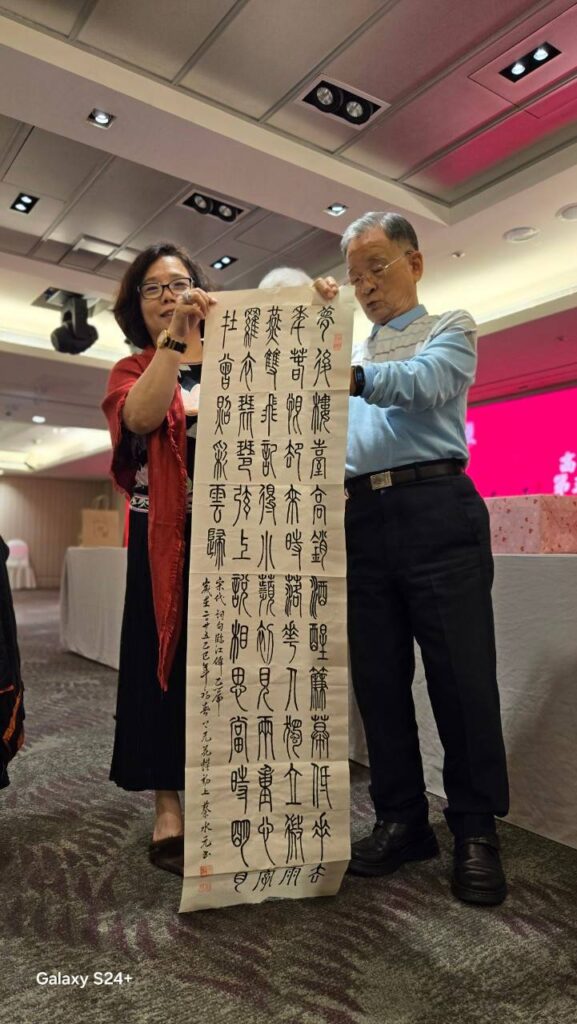 夢後樓臺高鎖酒醒簾幕低垂去
年春恨却來時落花人獨立微雨
燕雙飛記得小蘋初見兩重心字
羅衣琵琶弦上說相思當時明月
在曾照彩雲歸
宋代 詞句臨江僊
乙巳年 蔡水元書
高
第
Galaxy S24+